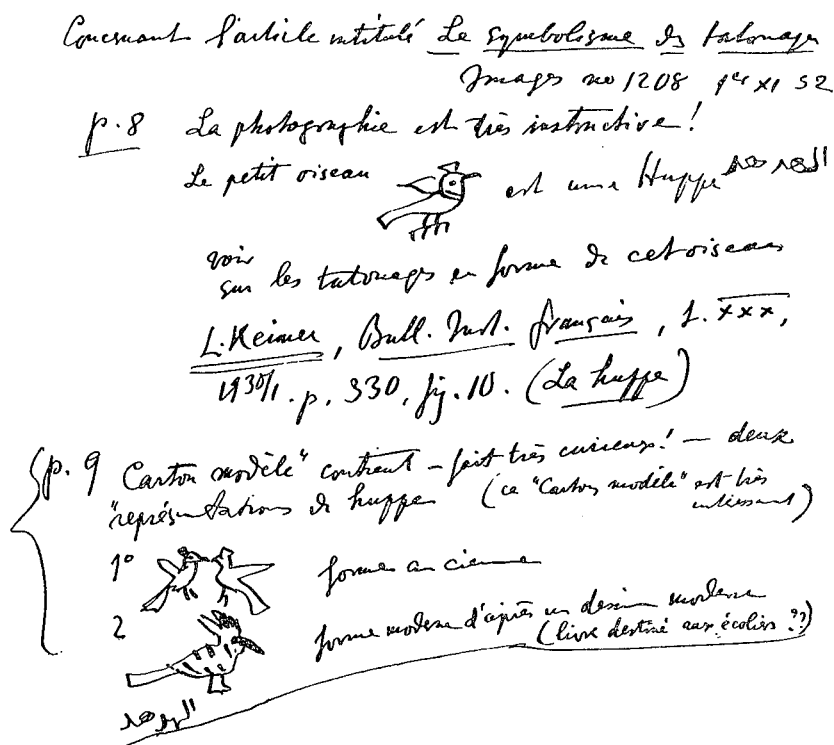 Concernant l'article intitulé Le symbolisme des tatouages
Images no 1208 1er XI 52
p. 8 La photographie est très instructive!
Le petit oiseau est une Huppe الهدهد
voir
sur les tatouages en forme de cet oiseau
L. Keimer, Bull. Inst. français, t. XXX,
1930/1. p. 330, fig. 10. (La huppe)
p. 9 Carton modèle" contient – fait très curieux! – deux
"représentations de huppe (ce "Carton modèle" est très
intéressant)
1º forme ancienne
2 forme moderne d'après un dessin moderne
(livre destiné aux écoliers ??)
الهدهد